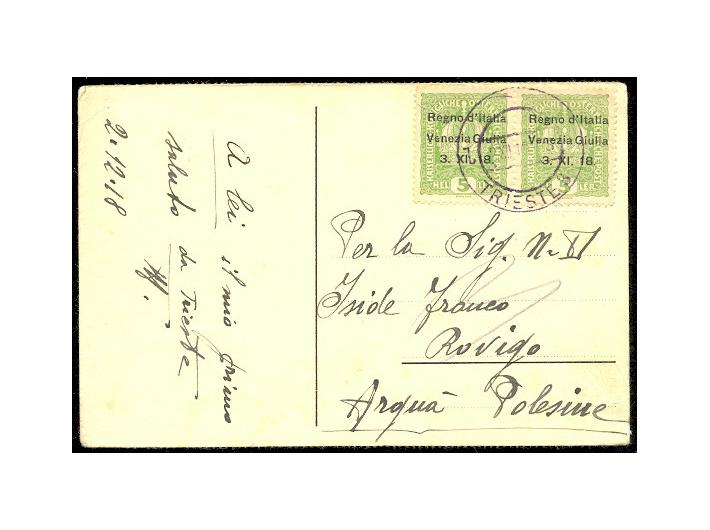 2·12·18
A lei il mio primo
saluto da Trieste
Regno d'Italia
Venezia Giulia
3. XI. 18.
5
HEL
Regno d'Italia
Venezia Giulia
3. XI. 18.
TRIESTE
Per la Sig. N-
Iside Franco
Rovigo
Arquà Polesine